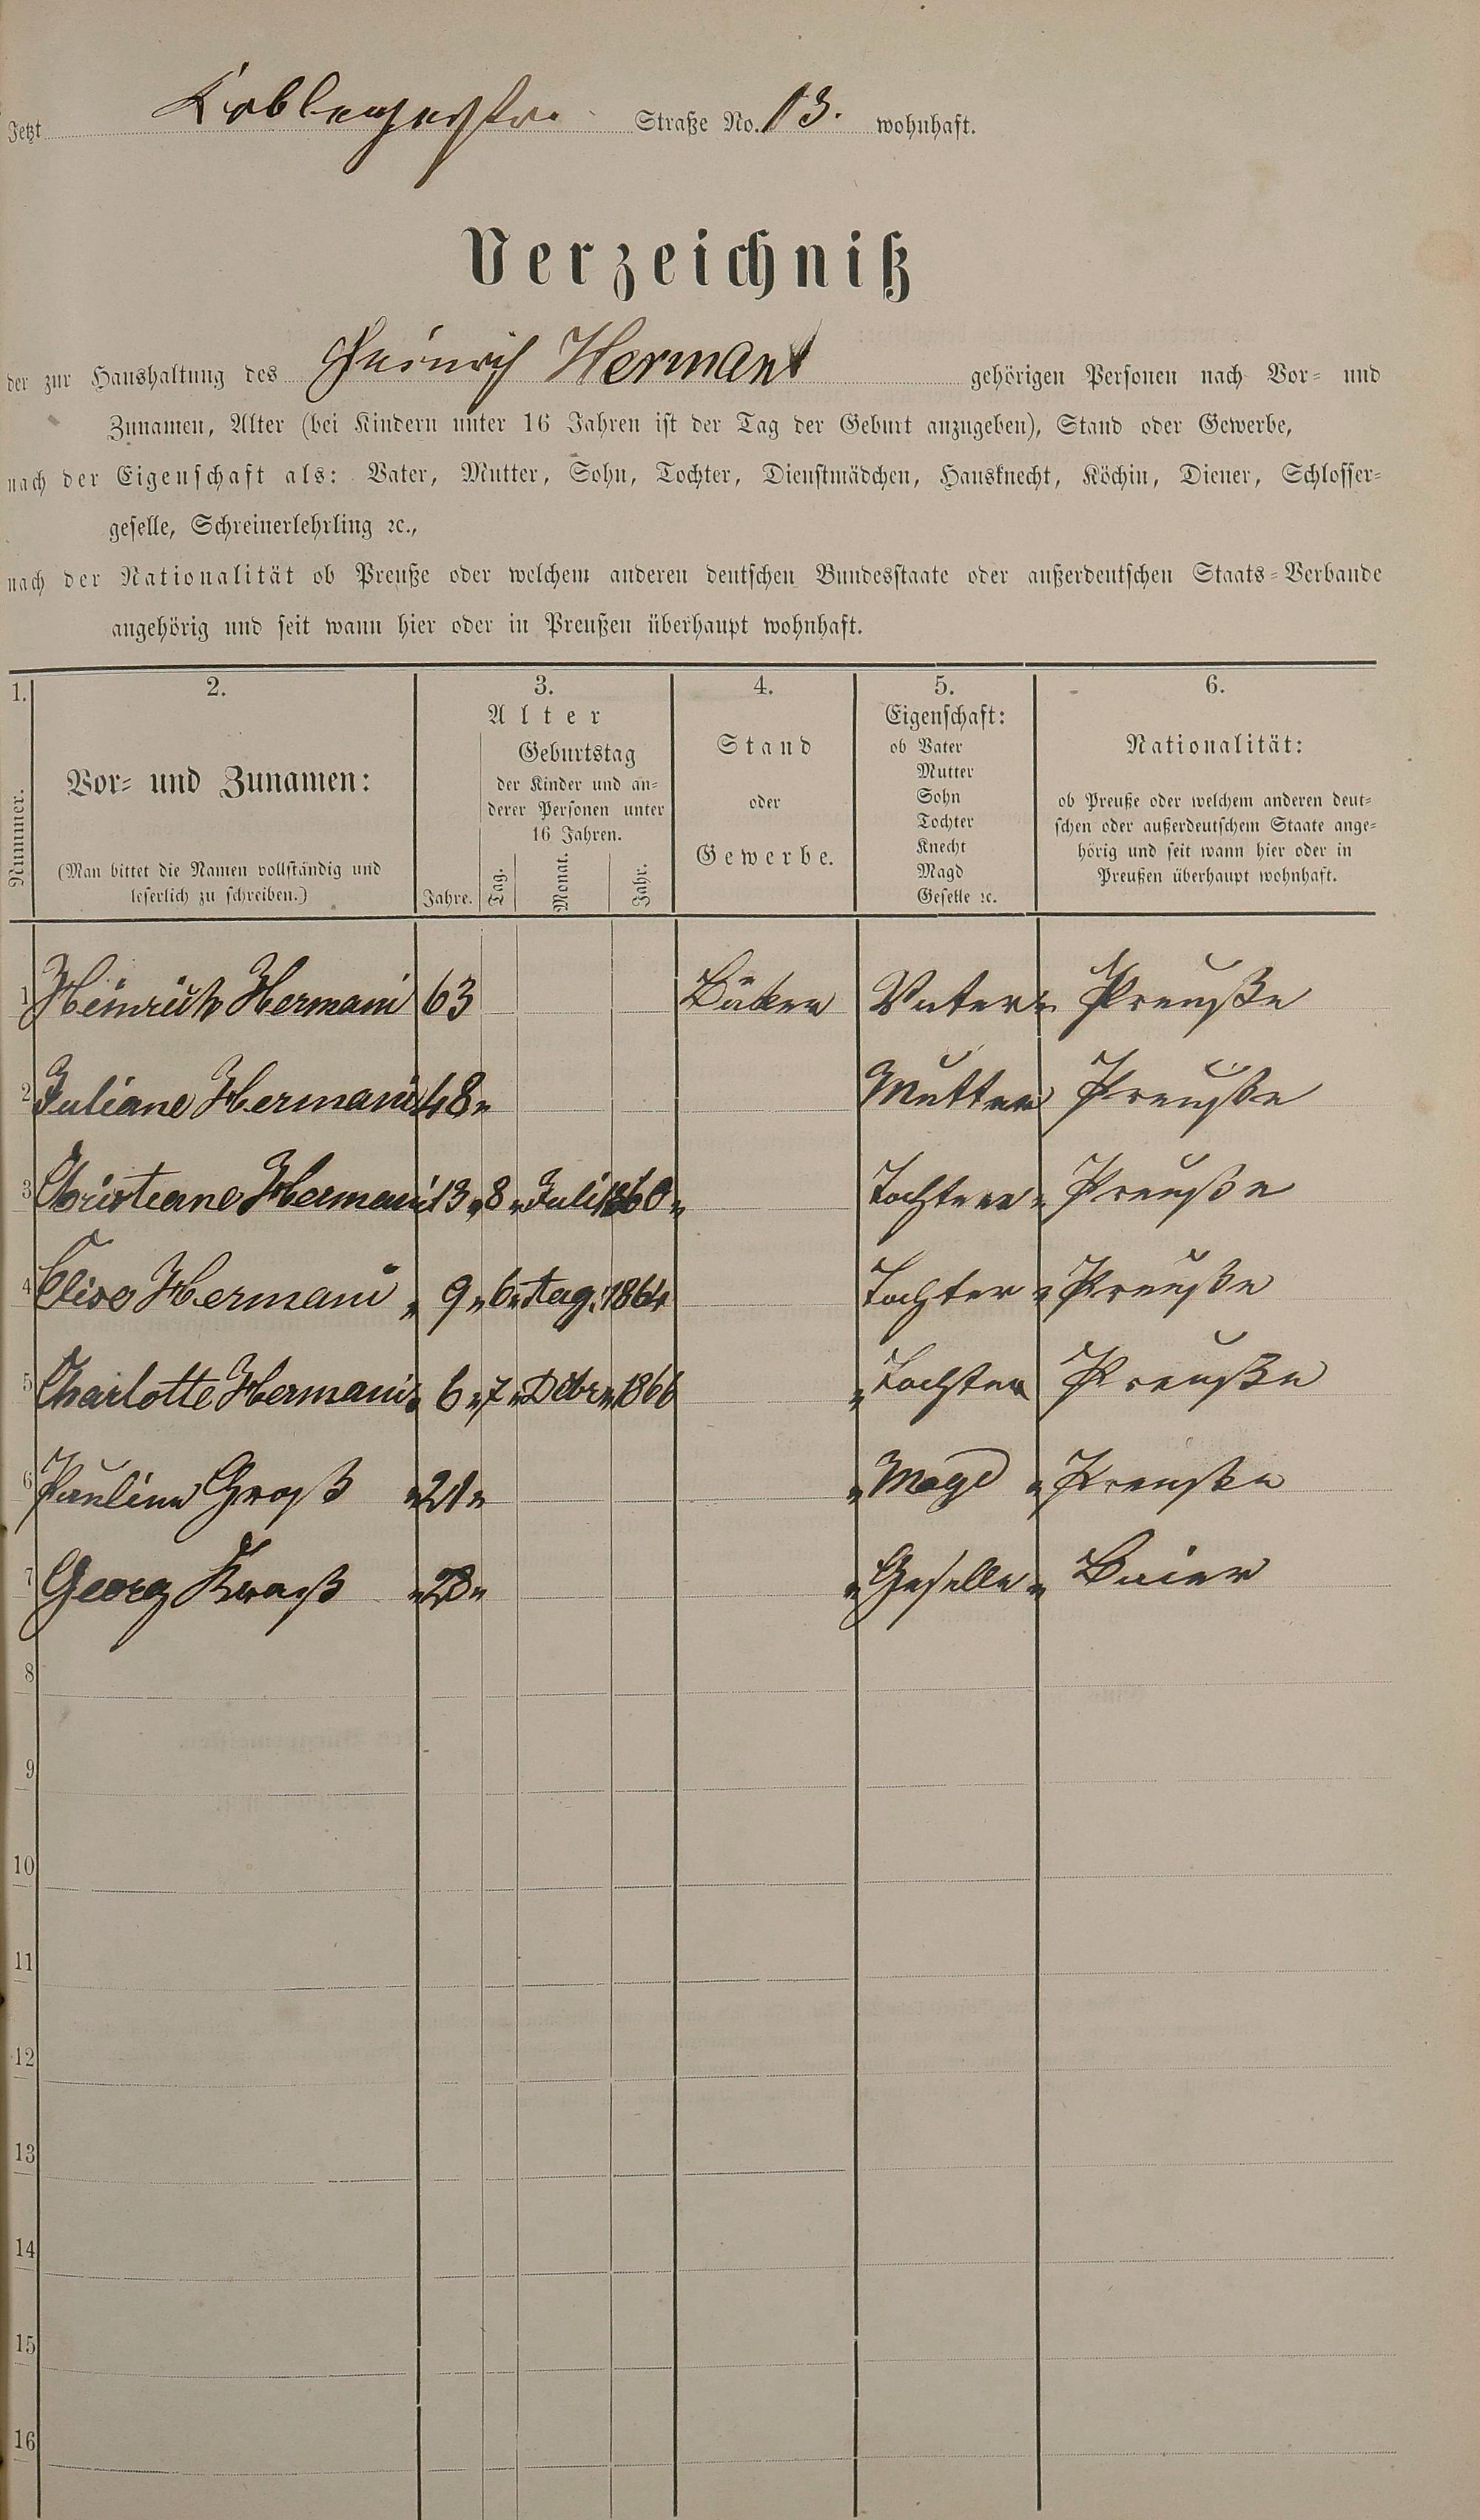 Jetzt Koblenzerstr. Straße No. 13. wohnhaft.
Verzeichniß
der zur Haushaltung des Heinrich Hermani gehörigen Personen nach Vor- und
Zunamen, Alter (bei Kindern unter 16 Jahren ist der Tag der Geburt anzugeben), Stand oder Gewerbe,
nach der Eigenschaft als: Vater, Mutter, Sohn, Tochter, Dienstmädchen, Hausknecht, Köchin, Diener, Schlosser-
geselle, Schreinerlehrling ꝛc.,
nach der Nationalität ob Preuße oder welchem anderen deutschen Bundesstaate oder außerdeutschen Staats-Verbande
angehörig und seit wann hier oder in Preußen überhaupt wohnhaft.
1. 2. 3. 4. 5. 6.
Nummer.
Vor- und Zunamen:
(Man bittet die Namen vollständig und
leserlich zu schreiben.)
Alter
Jahre.
Geburtstag
der Kinder und an-
derer Personen unter
16 Jahren.
Tag. Monat. Jahr.
Stand
oder
Gewerbe.
Eigenschaft:
ob Vater
Mutter
Sohn
Tochter
Knecht
Magd
Geselle ꝛc.
Nationalität:
ob Preuße oder welchem anderen deut-
schen oder außerdeutschem Staate ange-
hörig und seit wann hier oder in
Preußen überhaupt wohnhaft.
1 Heinrich Hermani 63 Bäcker Vater " Preuße
2 Juliane Hermani 48 " Mutter Preuße
3 Christiane Hermani 13 " 8 " Juli 1860 " Tochter " Preuße
4 Elise Hermani " 9 " 6 " 1864 Tochter " Preuße
5 Charlotte Hermani " 6 " 7 " Debr " 1866 " Tochter Preuße
6 Pauline Groß " 21 " " Magd " Preuße
7 Georg Kraß " 23 " " Geselle " Baier
8
9
10
11
12
13
14
15
16